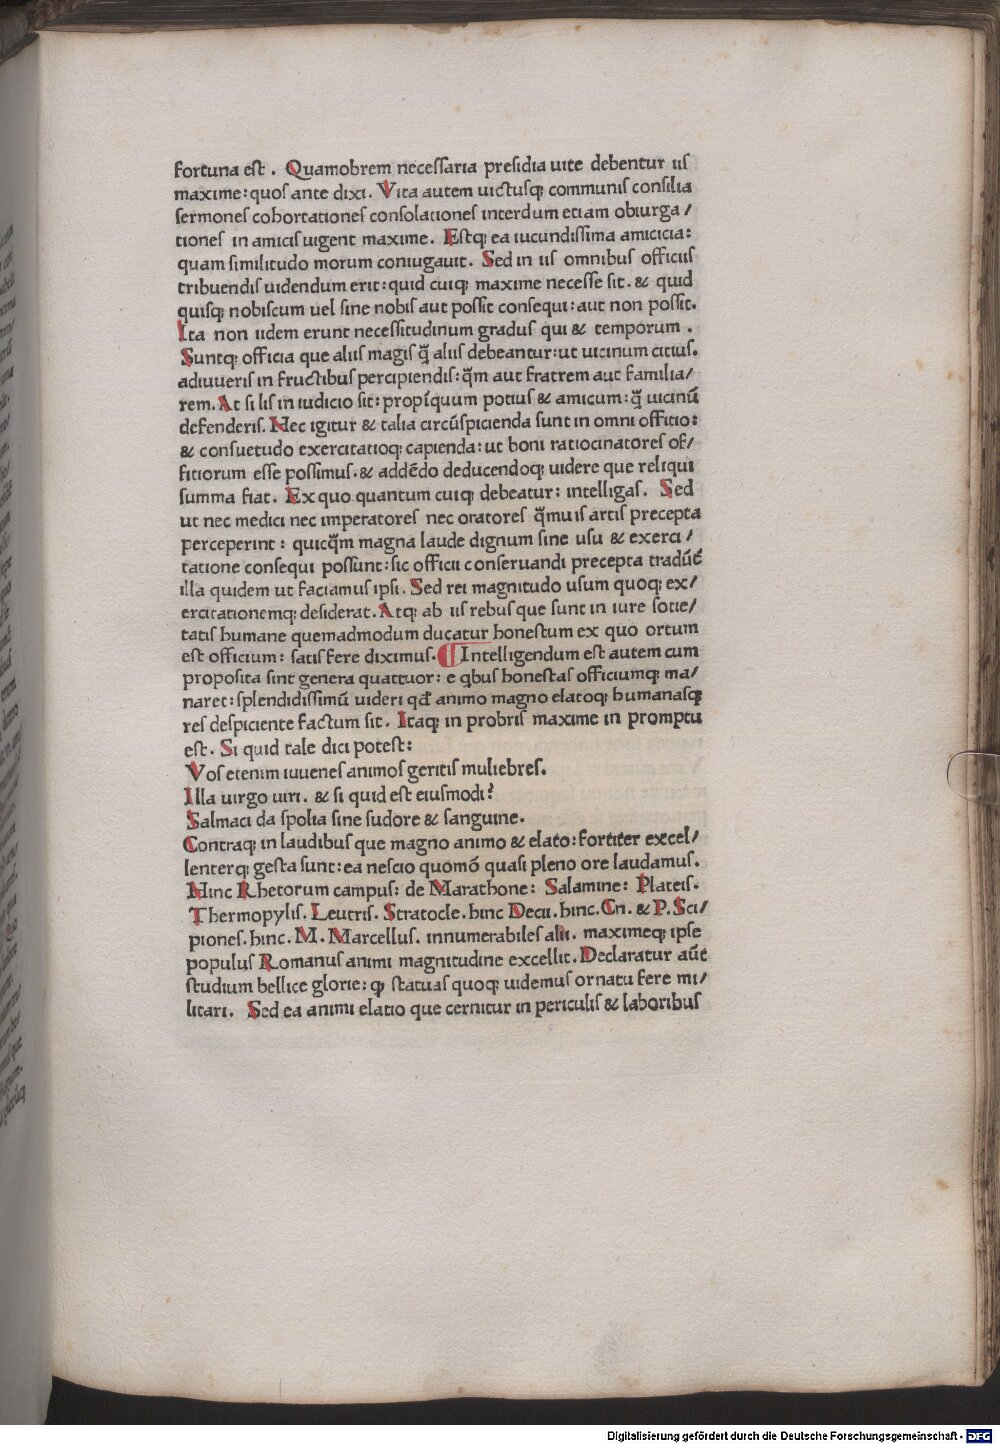 fortuna est . Quamobrem necessaria presidia uite debentur iis
maxime: quos ante dixi. Vita autem uictusq; communis consilia
sermones cohortationes consolationes interdum etiam obiurga /
tiones in amicis uigent maxime. Estq; ea iucundissima amicicia:
quam similitudo morum coniugauit. Sed in iis omnibus officiis
tribuendis uidendum erit: quid cuiq; maxime necesse sit. & quid
quisq; nobiscum uel sine nobis aut possit consequi: aut non possit.
Ita non iidem erunt necessitudinum gradus qui & temporum .
Suntq; officia que aliis magis q̃ aliis debeantur: ut uicinum citius.
adiuueris in fructibus percipiendis: q̃m aut fratrem aut familia/
rem. At si lis in iudicio sit: propĩquum potius & amicum: q̃ uicinũ
defenderis. Nec igitur & talia circũspicienda sunt in omni officio:
& consuetudo exercitatioq; capienda: ut boni ratiocinatores of/
fitiorum esse possimus. & addẽdo deducendoq; uidere que reliqui
summa fiat. Ex quo quantum cuiq; debeatur: intelligas. Sed
ut nec medici nec imperatores nec oratores q̃muis artis precepta
perceperint: quicq̃m magna laude dignum sine usu & exerci /
tatione consequi possunt: sic officii conseruandi precepta tradũt̃
illa quidem ut faciamus ipsi. Sed rei magnitudo usum quoq; ex/
ercitationemq; desiderat. Atq; ab iis rebus que sunt in iure sotie/
tatis humane quemadmodum ducatur honestum ex quo ortum
est officium: satis fere diximus. ¶ Intelligendum est autem cum
proposita sint genera quattuor: e qbus honestas officiumq; ma/
naret: splendidissimũ uideri qđ animo magno elatoq; humanasq;
res despiciente factum sit. Itaq; in probris maxime in promptu
est. Si quid tale dici potest:
Vos etenim iuuenes animos geritis muliebres.
Illa uirgo uiri. & si quid est eiusmodi?
Salmaci da spolia sine sudore & sanguine.
Contraq; in laudibus que magno animo & elato: fortiter excel/
lenterq; gesta sunt: ea nescio quomõ quasi pleno ore laudamus.
Hinc Rhetorum campus: de Marathone: Salamine: Plateis.
Thermopylis. Leutris. Stratocle. hinc Decii. hinc. Cn. & P. Sci/
piones. hinc. M. Marcellus. innumerabiles alii. maximeq; ipse
populus Romanus animi magnitudine excellit. Declaratur aũt
studium bellice glorie: ꝙ statuas quoq; uidemus ornatu fere mi/
litari. Sed ea animi elatio que cernitur in periculis & laboribus
Digitalisierung gefördert durch die Deutsche Forschungsgemeinschaft - DFG